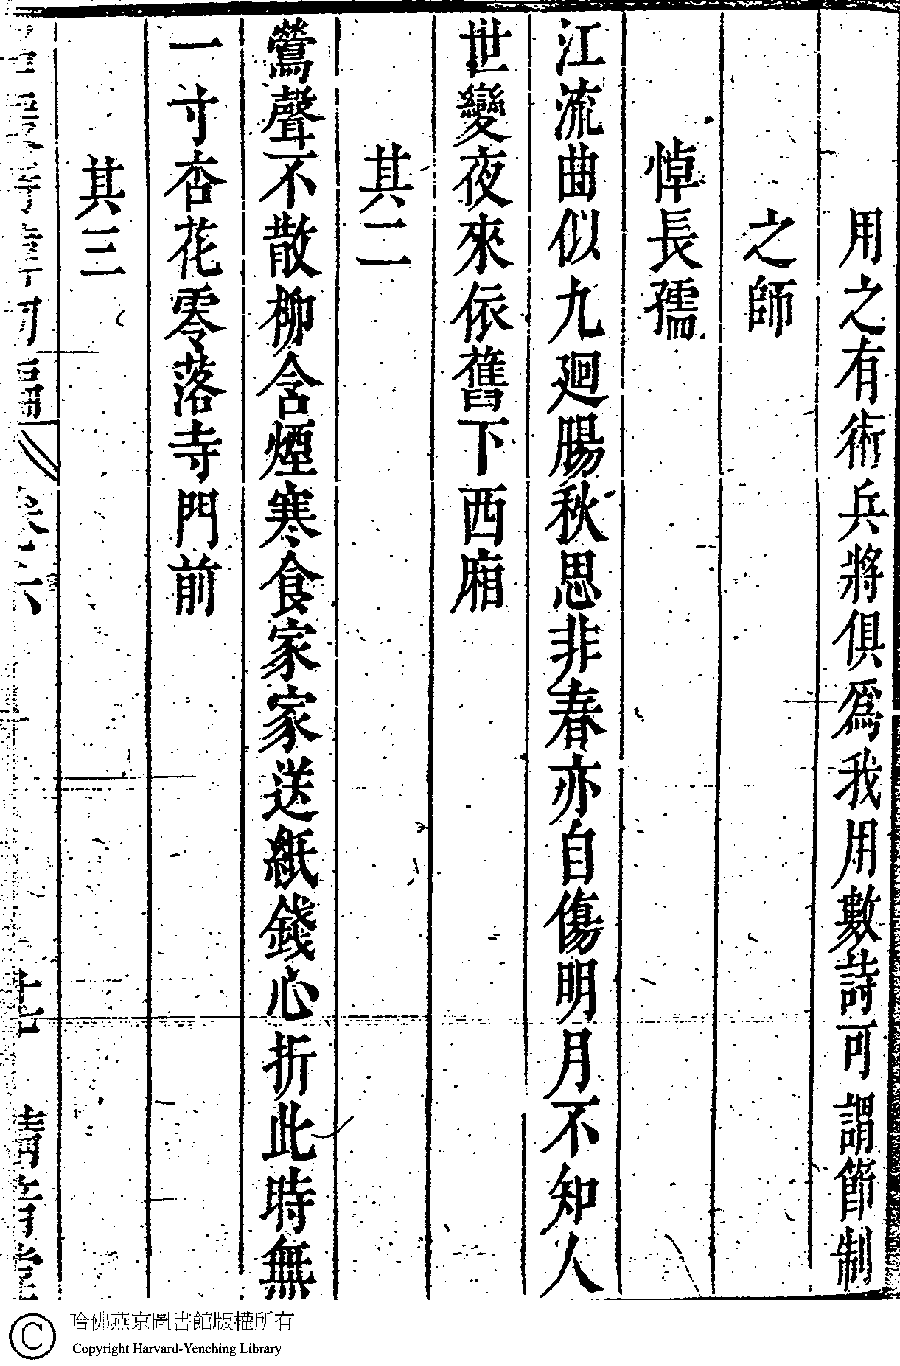 用之有術兵將俱爲我用數詩可謂節制
之師
悼長孺
江流曲似九廻腸秋思非春亦自傷明月不知人
世變夜來依舊下西廂
其二
鶯聲不散柳含煙寒食家家送紙錢心折此時無
一寸杏花零落寺門前
其三
哈佛燕京圖書館版權所有
Copyright Harvard-Yenching Library